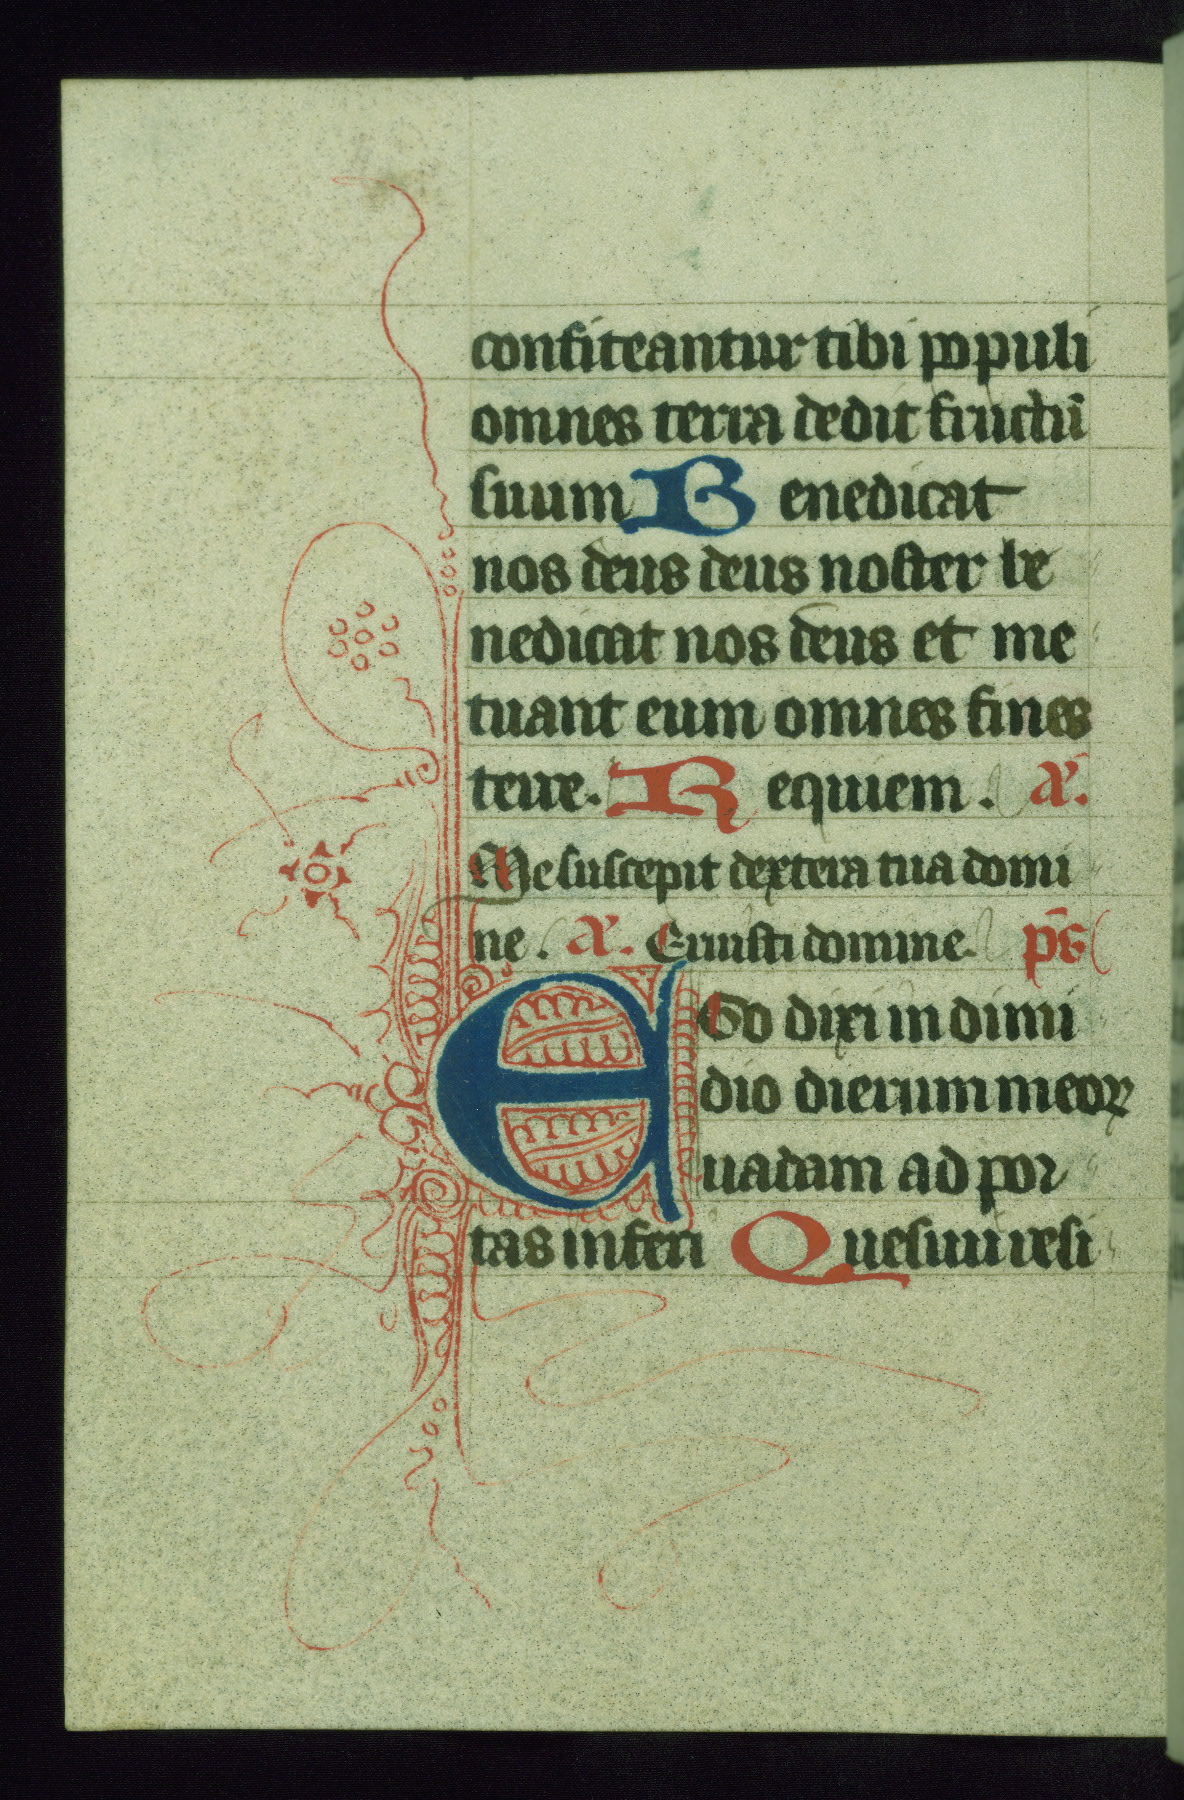 confiteantur tibi populi
omnes terra dedit fructū
suum Benedicat
nos deus deus noster be
nedicat nos deus et me
tuant eum omnes fines
terre. Requiem. a͞.
Me suscepit dextera tua domi
ne. a͞. Eruisti domine. p̄s
Ego dixi in dimi
dio dierum meoꝝ
uadam ad por
tas inferi Quesiui resi